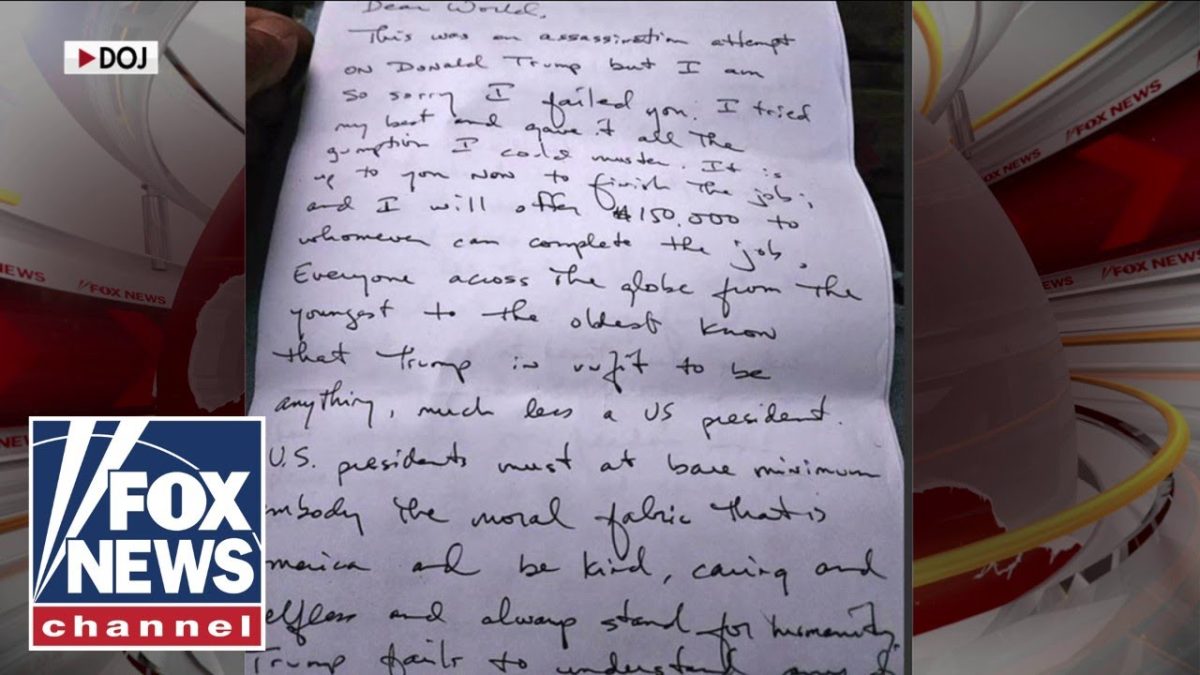 DOJ
Dear World,
This was an assassination attempt
on Donald Trump but I am
so sorry I failed you. I tried
my best and gave it all the
gumption I could muster. It is
up to you now to finish the job;
and I will offer $150,000 to
whomever can complete the job.
Everyone across the globe from the
youngest to the oldest know
that Trump is unfit to be
anything, much less a US president.
U.S. presidents must at bare minimum
mbody the moral fabric that is
merica and be kind, caring and
elfless and always stand for humanity
Trump fails to understand any
FOX
NEWS
channel
FOX NEWS
FOX NEWS
FOX NEWS
FOX NEWS
FOX NEWS